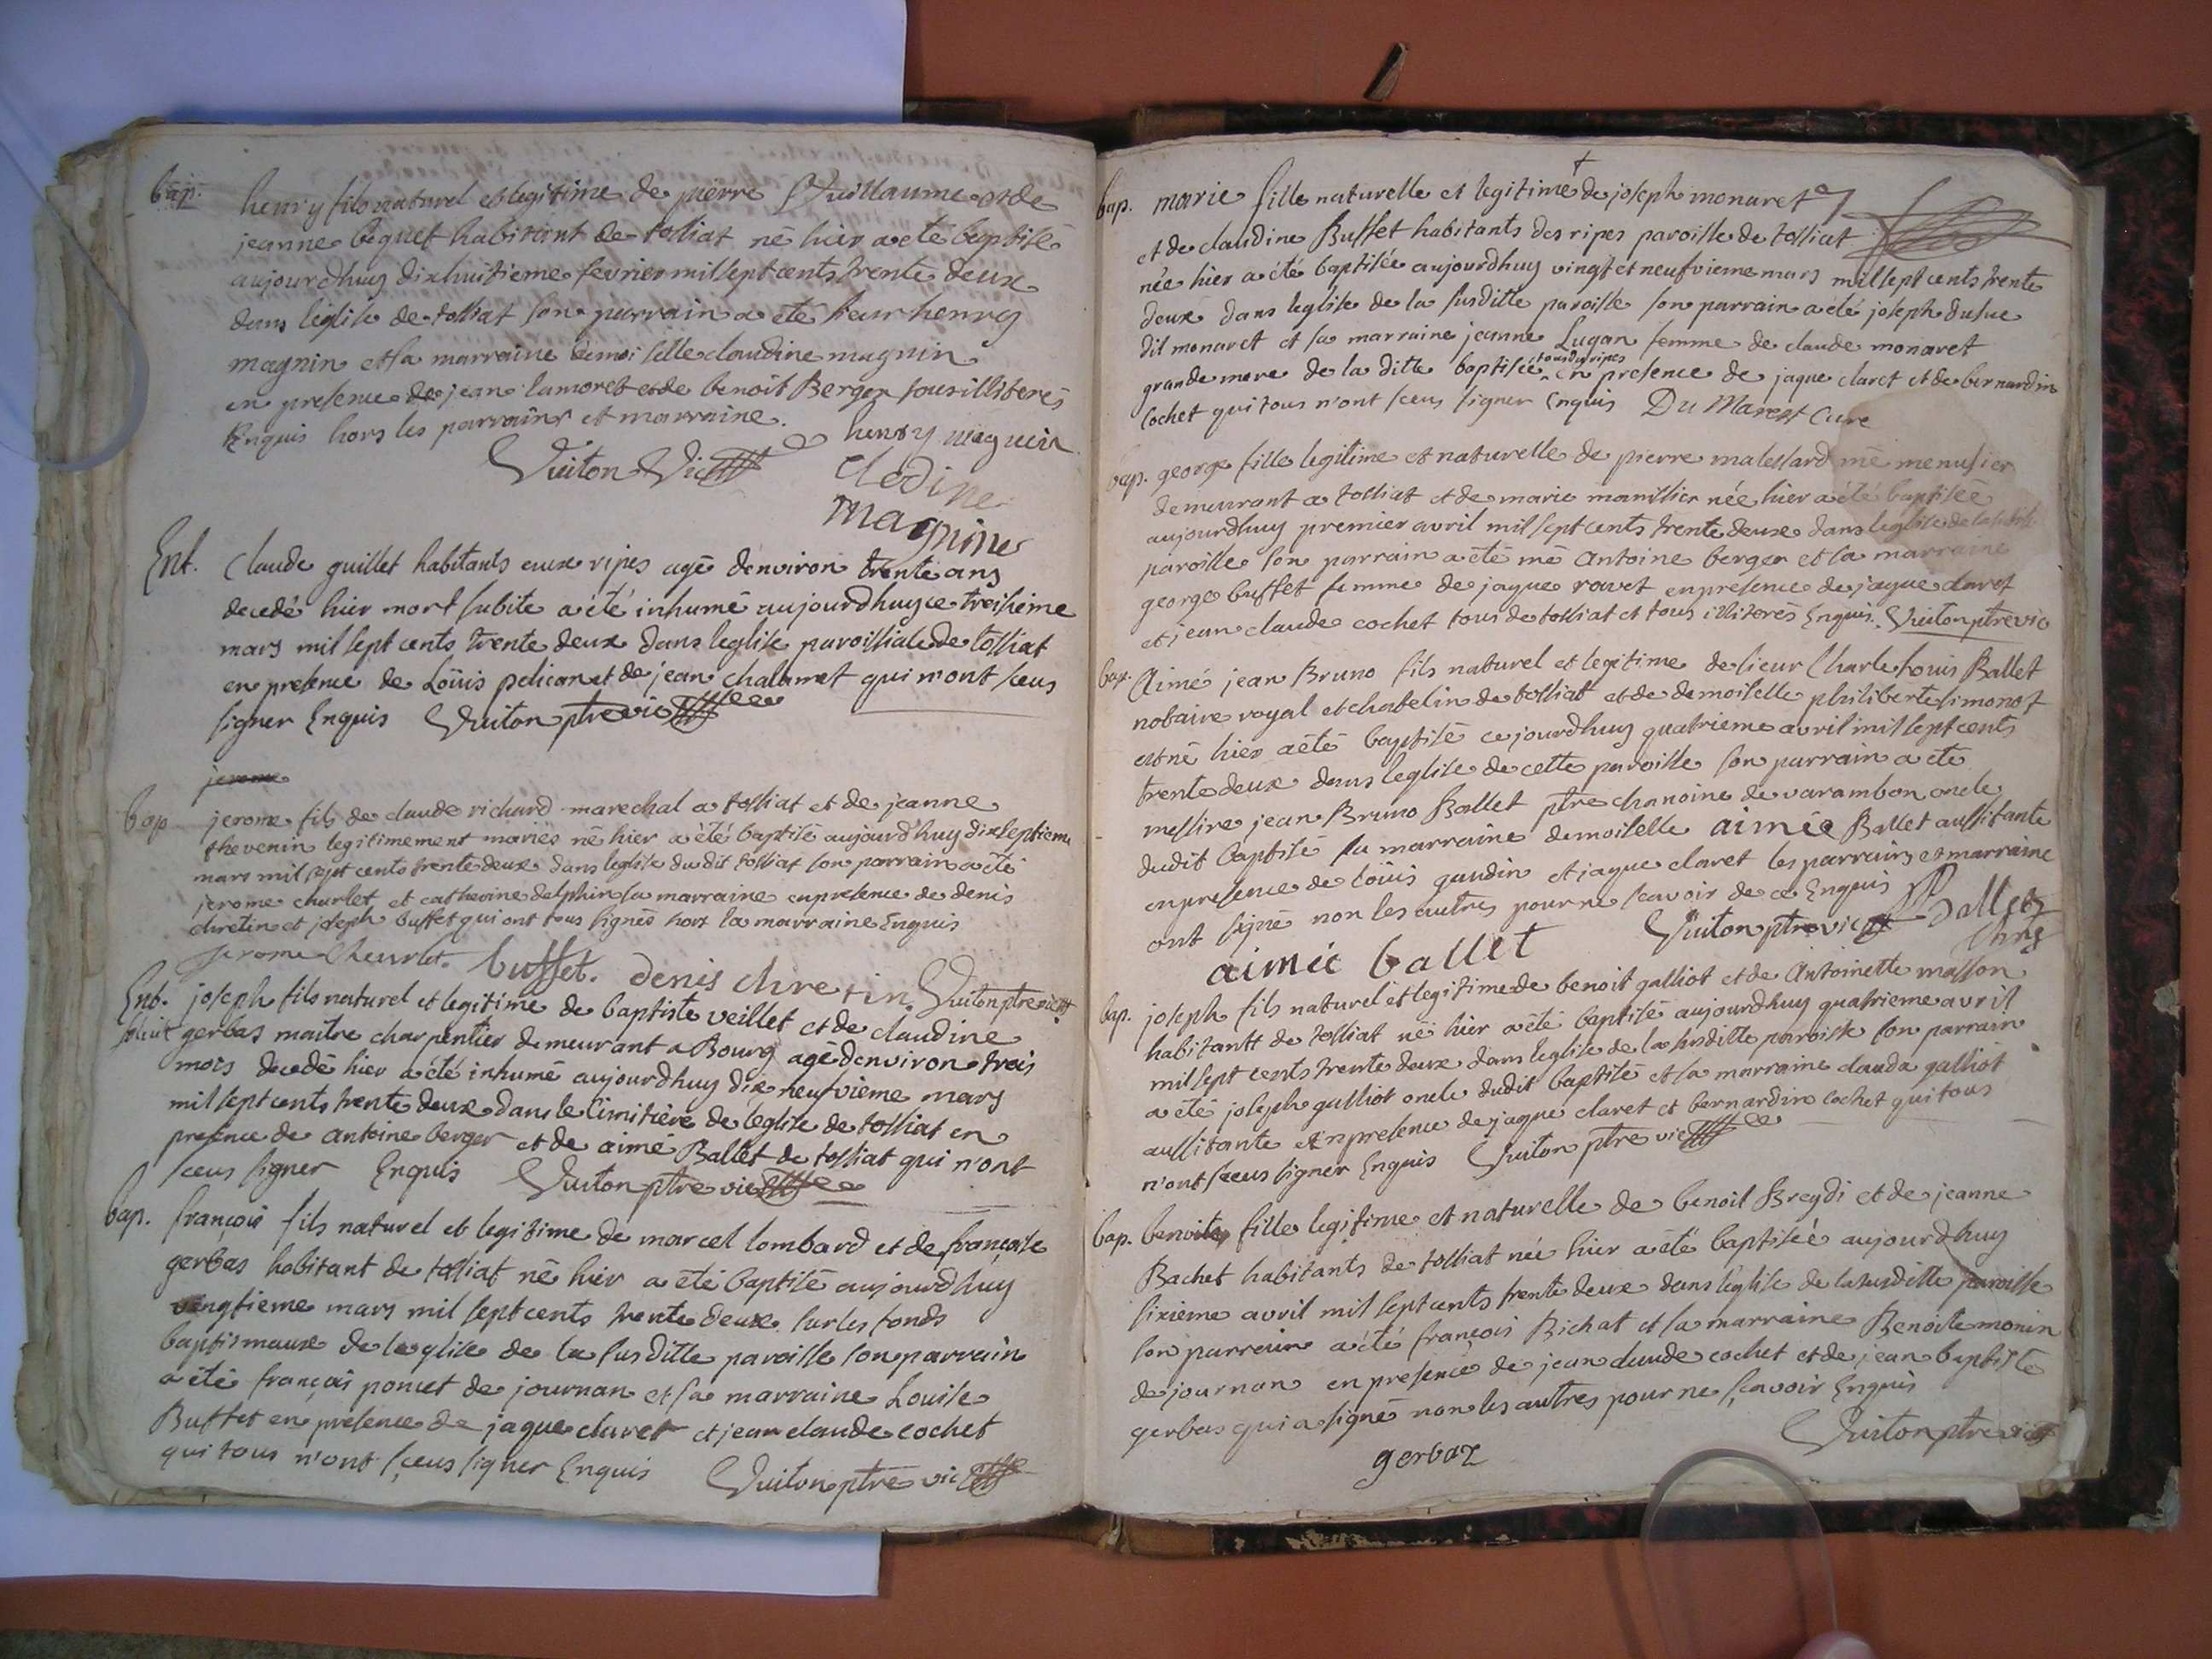 bap. henry fils naturel et legitime de pierre Guillaume et de
jeanne bequet habitant de tossiat né hier a eté baptisé
aujourdhuy dixhuitieme fevrier mil sept cents trente deux
dans leglise de tossiat son parrain a eté sieur henry
magnin et sa marraine demoiselle claudine magnin
en presence de jean lamoret et de benoit Berger tous illiterés
Enquis hors les parrains et marraine.
Vuiton Vic henry magnin
clodine
magnin
Ent. Claude guillet habitants aux ripes agé denviron trente ans
decedé hier mort subite a été inhumé aujourdhuy ce treisieme
mars mil sept cents trente deux dans leglise paroissiale de tossiat
en presence de Loüis pelican et de jean chalamet qui n'ont sceus
signer Enquis Vuiton ptre vic
jerome
bap jerome fils de claude richard marechal a tossiat et de jeanne
thevenin legitimement mariés né hier a été baptisé aujourd'huy dixseptieme
mars mil sept cents trente deux dans leglise dudit tossiat son parrain a été
jerome churlet et catherine delphin sa marraine en presence de denis
chretin et joseph buffet qui ont tous signés hors la marraine Enquis
jerome Cheurlet. buffet. denis chretin Vuiton ptre vic
Ent. joseph fils naturel et legitime de baptiste veillet et de claudine
gerbas maitre charpentier demeurant a Bourg agé denviron trois
mois decedé hier a été inhumé aujourdhuy dix neufvieme mars
mil sept cents trente deux dans le cimitière de leglise de tossiat en
presence de antoine berger et de aimé Ballet de tossiat qui n'ont
sceus signer Enquis Vuiton ptre vic
bap. françois fils naturel et legitime de marcel lombard et de françoise
gerbas habitant de tossiat né hier a été baptisé aujourdhuy
vingtieme mars mil sept cents trente deux sur les fonds
baptismaux de leglise de la susditte paroisse son parrain
a été françois poncet de journan et sa marraine Louise
Buffet en presence de jaque claret et jean claude cochet
qui tous n'ont sçeus signer Enquis Vuiton ptre vic
bap. marie fille naturelle et legitime de joseph monaret
et de claudine Buffet habitants des ripes paroisse de tossiat
née hier a été baptisée aujourdhuy vingt et neufvieme mars mil sept cents trente
deux dans leglise de la susditte paroisse son parrain a été joseph dusue
dit monaret et sa marraine jeanne Lugan femme de claude monaret
grande mere de la ditte baptisée tous des ripes en presence de jaque claret et de bernardin
Cochet qui tous n'ont sceus signer Enquis Du Marest Curé
bap. george fille legitime et naturelle de pierre malessard me menusier
demeurant a tossiat et de marie manissier née hier a été baptisée
aujourdhuy premier avril mil sept cents trente deux dans leglise de la susditte
paroisse son parrain a été me Antoine berger et sa marraine
george buffet femme de jaque rouet en presence de jaque claret
et jean claude cochet tous de tossiat et tous illiterés Enquis. Vuiton ptre vic
bap. Aimé jean Bruno fils naturel et legitime de sieur Charle Louis Ballet
notaire royal et chatelin de tossiat et de demoiselle philiberte simonot
est né hier a été baptisé ce jourdhuy quatrieme avril mil sept cents
trente deux dans leglise de cette paroisse son parrain a été
messire jean Bruno Ballet ptre chanoine de varambon oncle
dudit baptisé sa marraine demoiselle aimée Ballet aussi tante
en presence de loüis gaudin et jaque claret les parrains et marraine
ont signé non les autres pour ne scavoir de ce Enquis
Vuiton ptre vic Ballet
aimée ballet
bap. joseph fils naturel et legitime de benoit galliot et de Antoinette masson
habitants de tossiat né hier a été baptisé aujourdhuy quatrieme avril
mil sept cents trente deux dans leglise de la susditte paroisse son parrain
a été joseph galliot oncle dudit baptisé et sa marraine clauda galliot
aussi tante et en presence de jaque claret et bernardin cochet qui tous
n'ont sceus signer Enquis Vuiton ptre vic
bap. benoite fille legitime et naturelle de benoit Breydi et de jeanne
Bachet habitants de tossiat née hier a été baptisée aujourdhuy
sixieme avril mil sept cents trente deux dans leglise de la susditte paroisse
son parrain a été françois Bichat et sa marraine Benoite monin
de journan en presence de jean claude cochet et de jean baptiste
gerbas qui a signé non les autres pour ne sçavoir Enquis
gerbaz Vuiton ptre vic